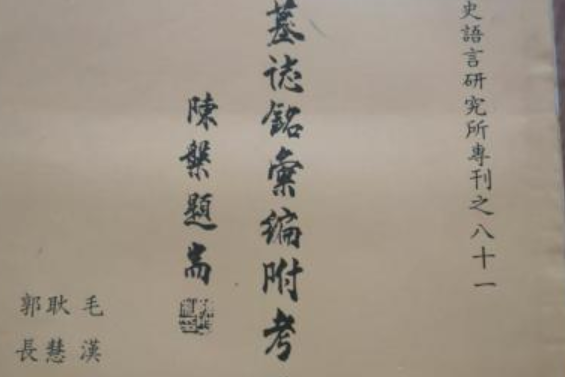 史語言研究所專刊之八十一
墓誌銘彙編附考
陳槃題耑
毛漢
耿慧
郭長